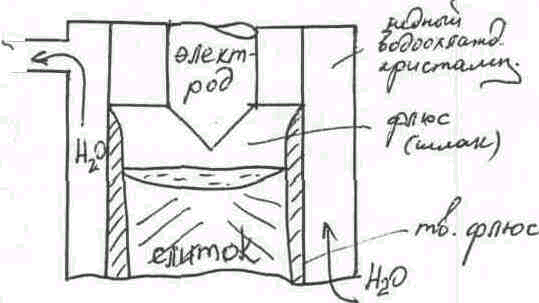 элект-
род
медный
водоохлажд.
кристалл.
флюс
(шлак)
H₂O
слиток
тв. флюс
H₂O